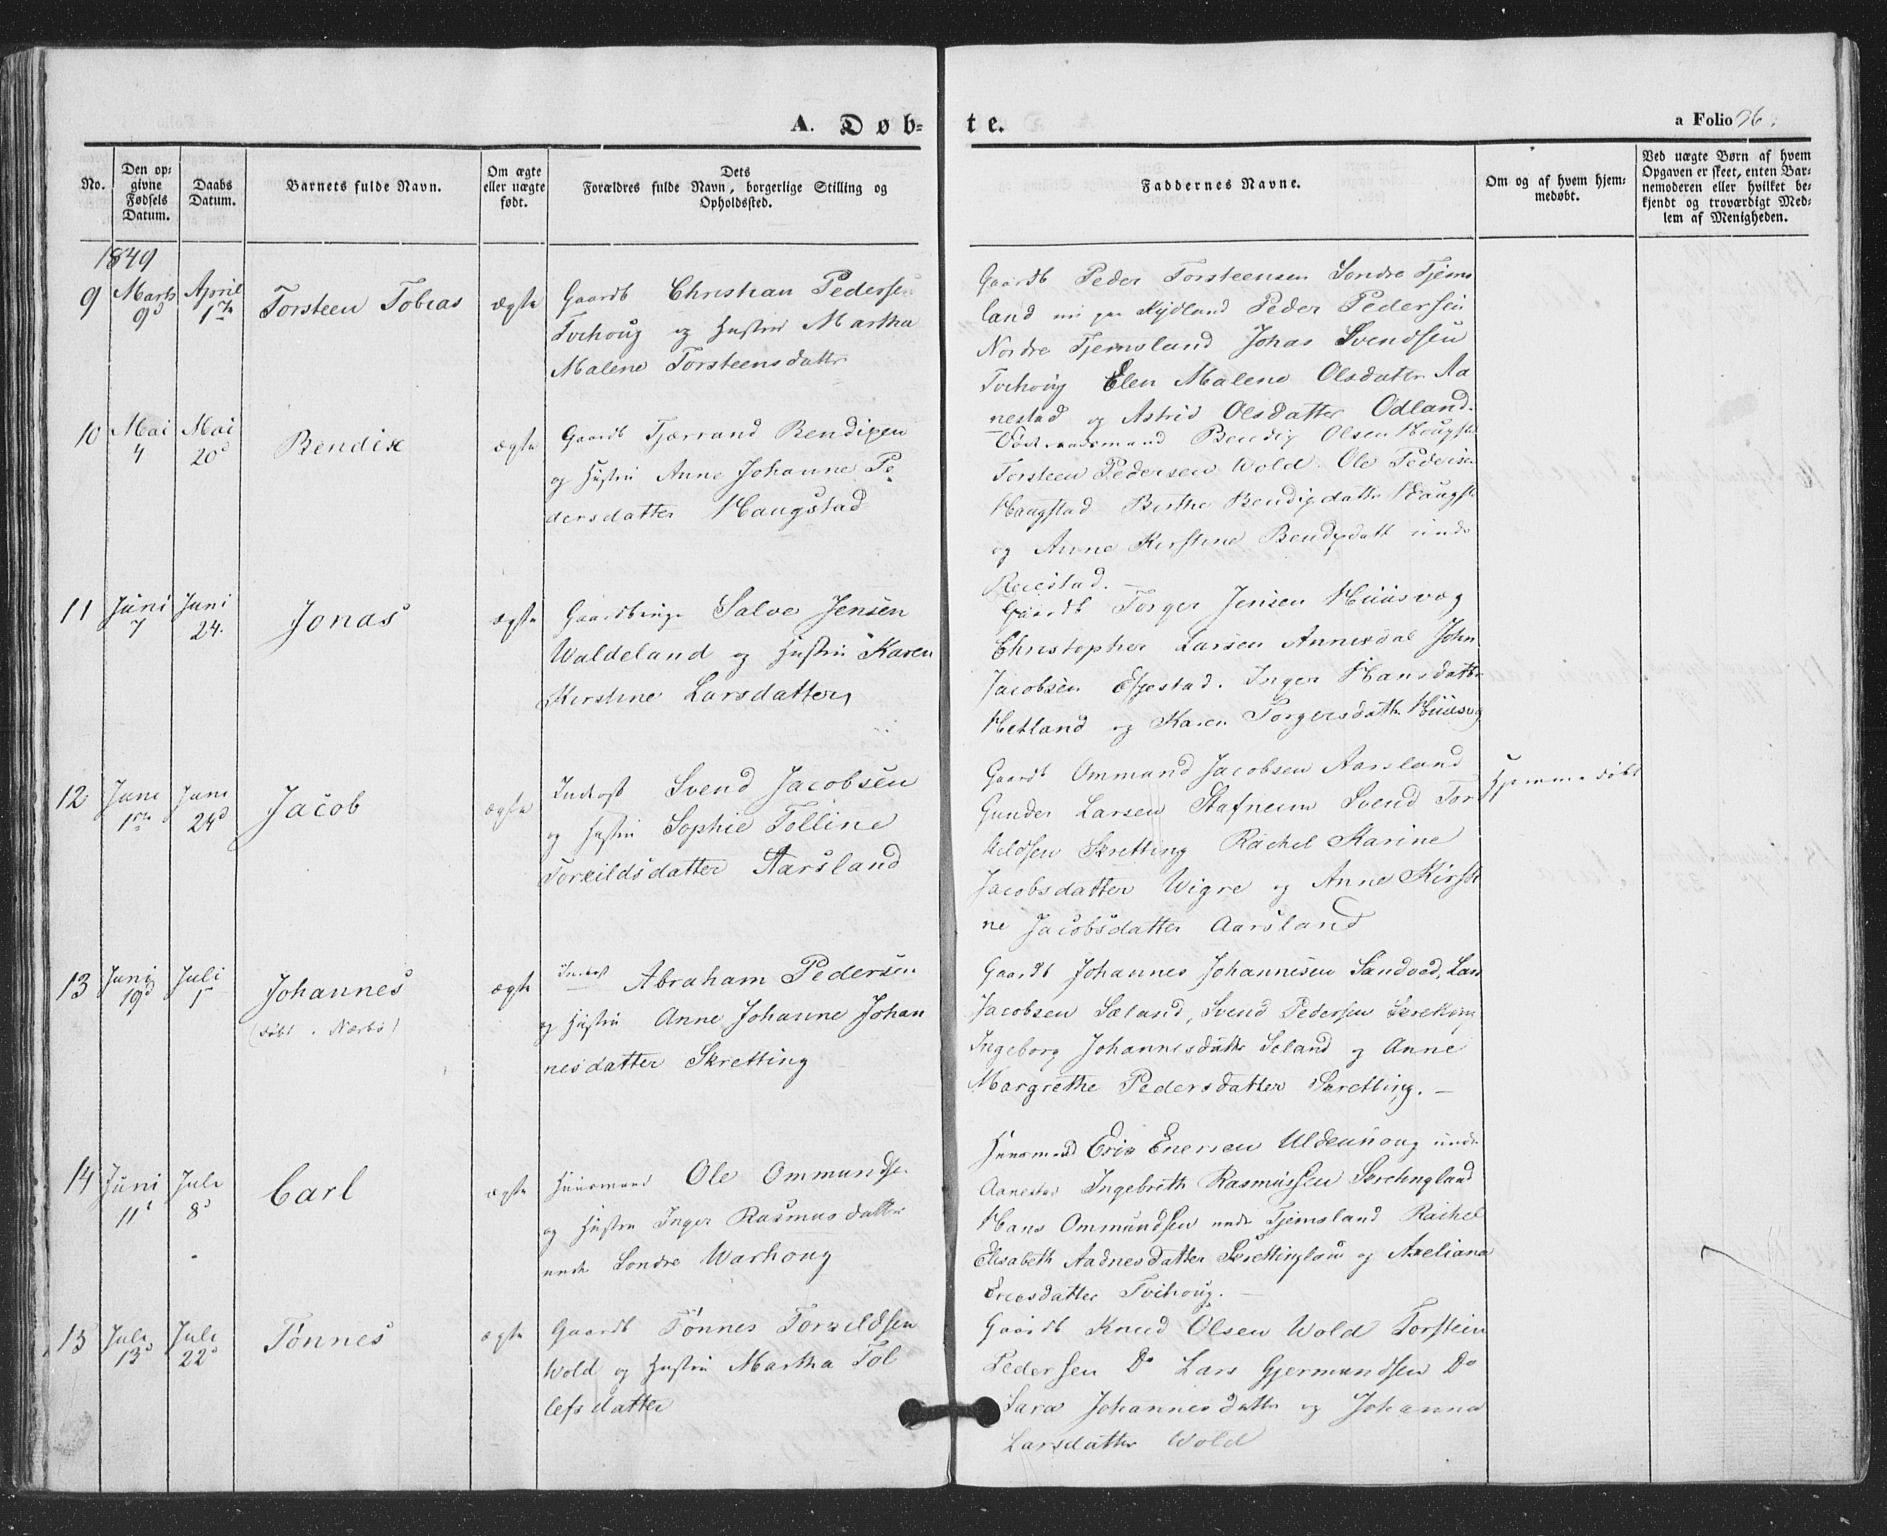 A. Døb-
te.
a Folio 26.
No.
Den op-
givne
Fødsels
Datum.
Daabs
Datum.
Barnets fulde Navn.
Om ægte
eller uægte
født.
Dets
Forældres fulde Navn, borgerlige Stilling og
Opholdssted.
Faddernes Navne.
Om og af hvem hjem-
medøbt.
Ved uægte Børn af hvem
Opgaven er skeet, enten Bar-
nemoderen eller hvilket be-
kjendt og troværdigt Med-
lem af Menigheden.
1849
9 Marts 9d April 1ste Torsteen Tobias ægte
Gaardb Christian Pedersen
Tvihoug og Hustru Martha
Malene Torsteensdatter
Gaardb Peder Torsteensen Søndre Tjems
land nu paa Kydland Peder Pedersen
Nordre Tjemsland Johas Svendsen
Tvihoug Elen Malene Olsdatter Aa
nestad og Astrid Olsdatter Odland.
10 Mai 4 Mai 20d Bendix ægte
Gaardb Tjærrand Bendixen
og Hustru Anne Johanne Pe
dersdatter Haugstad
Bendix Olsen Haugstad
Torsteen Pedersen Wold. Ole Pedersen
Haugstad Berthe Bendixdatter Haugst
og Anne Kirstine Bendixdatt
11 Juni 7 Juni 24. Jonas ægte
Gaardbruger Salve Jensen
Waldeland og Hustru Karen
Kirstine Larsdatter
Gaardb Torger Jensen Huusvæg
Christopher Larsen Annisdal John
Jacobsen Efjestad. Inger Hansdatter
Hetland og Karen Torgersdatter Huusvg
12 Juni 1ste Juni 24d Jacob ægte
Inderst Svend Jacobsen
og Hustru Sophie Tolline
Torkildsdatter Aarsland
Gaardb Ommund Jacobsen Aarsland
Gunder Larsen Stafneim Svend Tor
kildsen Skretting Rachel Karine
Jacobsdatter Wigre og Anne Kirsti
ne Jacobsdatter Aarsland
Hjemmedøbt
13 Juni 19d Juli 1 Johannes ægte
(døbt i Nærbø)
Inderst Abraham Pedersen
og Hustru Anne Johanne Johan
nesdatter Skretting
Gaardb Johannes Johannesen Sandved, Lars
Jacobsen Sæland, Svend Pedersen Skretting
Ingeborg Johannesdatter Seland og Anne
Margrethe Pedersdatter Skretting. –
14 Juni 11d Juli 8d Carl ægte
Huusmand Ole Ommundsen
og Hustru Inger Rasmusdatter
unde Søndre Warhoug
Huusmand Eric Enersen Uldenhoug unde
Aanestad Ingebreth Rasmussen Skrettingland
Hans Ommundsen unde Tjemsland Rachel
Elisabeth Aadnesdatter Skrettingland og Axeliana
Ericsdatter Tvihoug. –
15 Juli 13d Juli 22d Tønnes ægte
Gaardb Tønnes Torkildsen
Wold og Hustru Martha Tol
lefsdatter
Gaardb Knud Olsen Wold Torstein
Pedersen Do Lars Gjermundsen Do
Sara Johannesdatter og Johanna
Larsdatter Wold